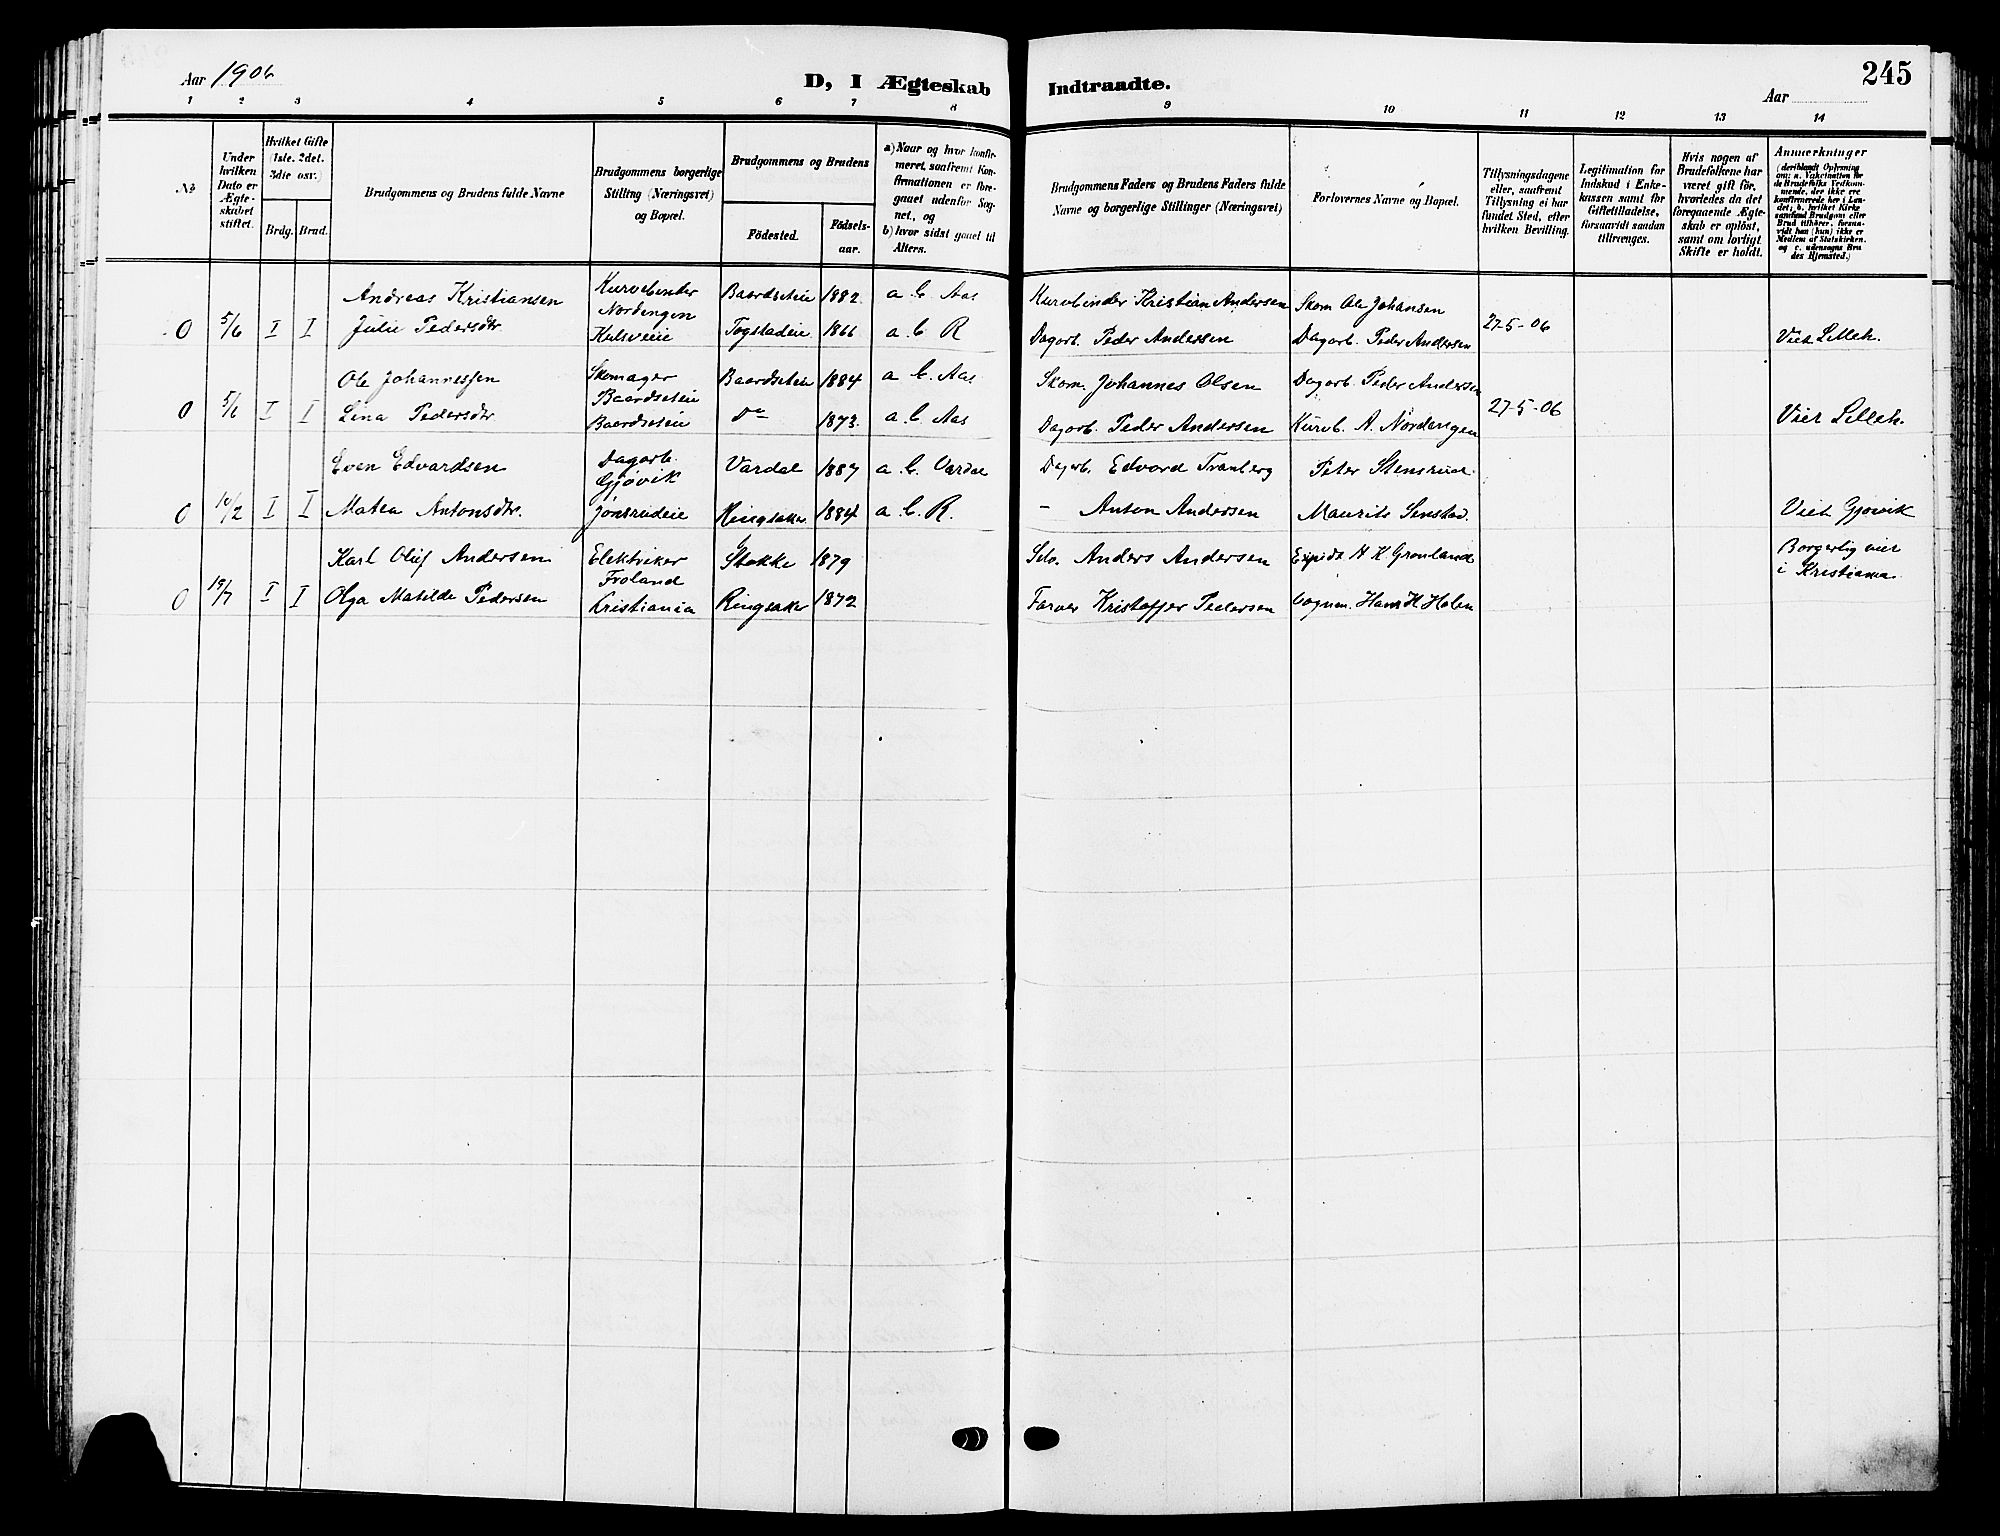 Aar 1906
D, I Ægteskab Indtraadte.
245
Aar
1 2 3 4 5 6 7 8 9 10 11 12 13 14
No
Under hvilken Dato er Ægteskabet stiftet.
Hvilket Gifte (1ste. 2det. 3die osv.)
Brdg. Brud.
Brudgommens og Brudens fulde Navne
Brudgommens borgerlige Stilling (Næringsvei) og Bopæl.
Brudgommens og Brudens
Födested.
Födselsaar.
a) Naar og hvor konfirmeret, saafremt Konfirmationen er foregaaet udenfor Sognet, og
b) hvor sidst gaaet til Alters.
Brudgommens Faders og Brudens Faders fulde Navne og borgerlige Stillinger (Næringsvei)
Forlovernes Navne og Bopæl.
Tillysningsdagene eller, saafremt Tillysning ei har fundet Sted, efter hvilken Bevilling.
Legitimation for Indskud i Enkekassen samt for Giftetilladelse, forsaavidt saadan tiltrænges.
Hvis nogen af Brudefolkene har været gift för, hvorledes da det foregaaende Ægteskab er oplöst, samt om lovligt Skifte er holdt.
Anmærkninger
(deriblandt Oplysning om: a. Vakcination for de Brudefolks Vedkommende, der ikke ere konfirmerede her i Landet; b. hvilket Kirkesamfund Brudgom eller Brud tilhører, forsaavidt han (hun) ikke er Medlem af Statskirken. og c. udensogns Brudes Hjemsted.)
Andreas Kristiansen Kurvebinder Nordengen Baardseteie 1882. a. b. Aas Kurvbinder Kristian Andersen Skom Ole Johansen
0 5/6 I I Julie Pedersdtr Kulsveeie Togstadeie 1866 a. b. R Dagarb. Peder Andersen Dagarb. Peder Andersen 27-5-06 Viet Lilleh.
Ole Johannessen Skomager Baardseteie Baardseteie 1884 a. b. Aas Skom. Johannes Olsen Dagarb. Peder Andersen
0 5/6 I I Lina Pedersdtr Baardseteie Do 1873. a. b. Aas Dagarb. Peder Andersen Kurvb. A. Nordengen 27-5-06 Viet Lilleh.
Even Edvardsen Dagarb. Gjøvik Vardal 1887 a. b. Vardal Dagarb. Edvard Tranberg Peter Stensrud
0 10/2 I I Matea Antonsdtr. Jønsrudeie Ringsaker 1884 a. b. R. - Anton Andersen Maurits Sinstad. Viet Gjøvik
Karl Oluf Andersen Elektriker Froland Stokke 1879 Selv. Anders Andersen Expidt. H. K. Grønland Borgerlig viet i Kristiania
0 19/7 I I Olga Matilde Pedersen Kristiania Ringsaker 1872 Farver Kristoffer Pedersen Vognm. Hans H. Holen